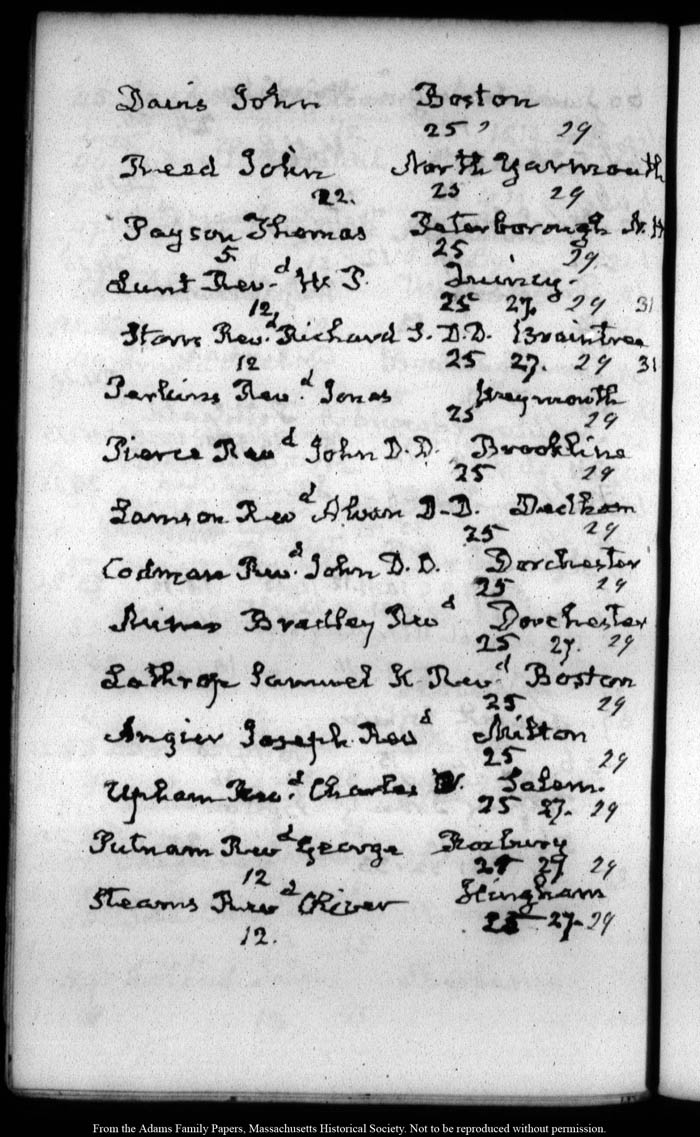 Davis John Boston
25 29
Reed John North Yarmouth
22. 25 29
Payson Thomas Peterborough N. H
5 25 29.
Lunt Rev.d W. P. Quincy.
12, 25 27. 29 31
Storrs Rev.d Richard S. D.D. Braintree
12 25 27. 29 31
Perkins Rev.d Jonas Weymouth
25 29
Pierce Revd John D.D. Brookline
25 29
Lamson Revd Alvan D.D. Dedham
25 29
Codman Rev.d John D.D. Dorchester
25 29
Miner Bradley Revd Dorchester
25 27. 29
Lothrop Samuel K. Rev.d Boston
25 29
Angier Joseph Revd Milton
25 29
Upham Rev.d Charles W. Salem.
25 27. 29
Putnam Revd George Roxbury
12 25 27 29
Stearns Revd Oliver Hingham
12. 25 27. 29
From the Adams Family Papers, Massachusetts Historical Society. Not to be reproduced without permission.